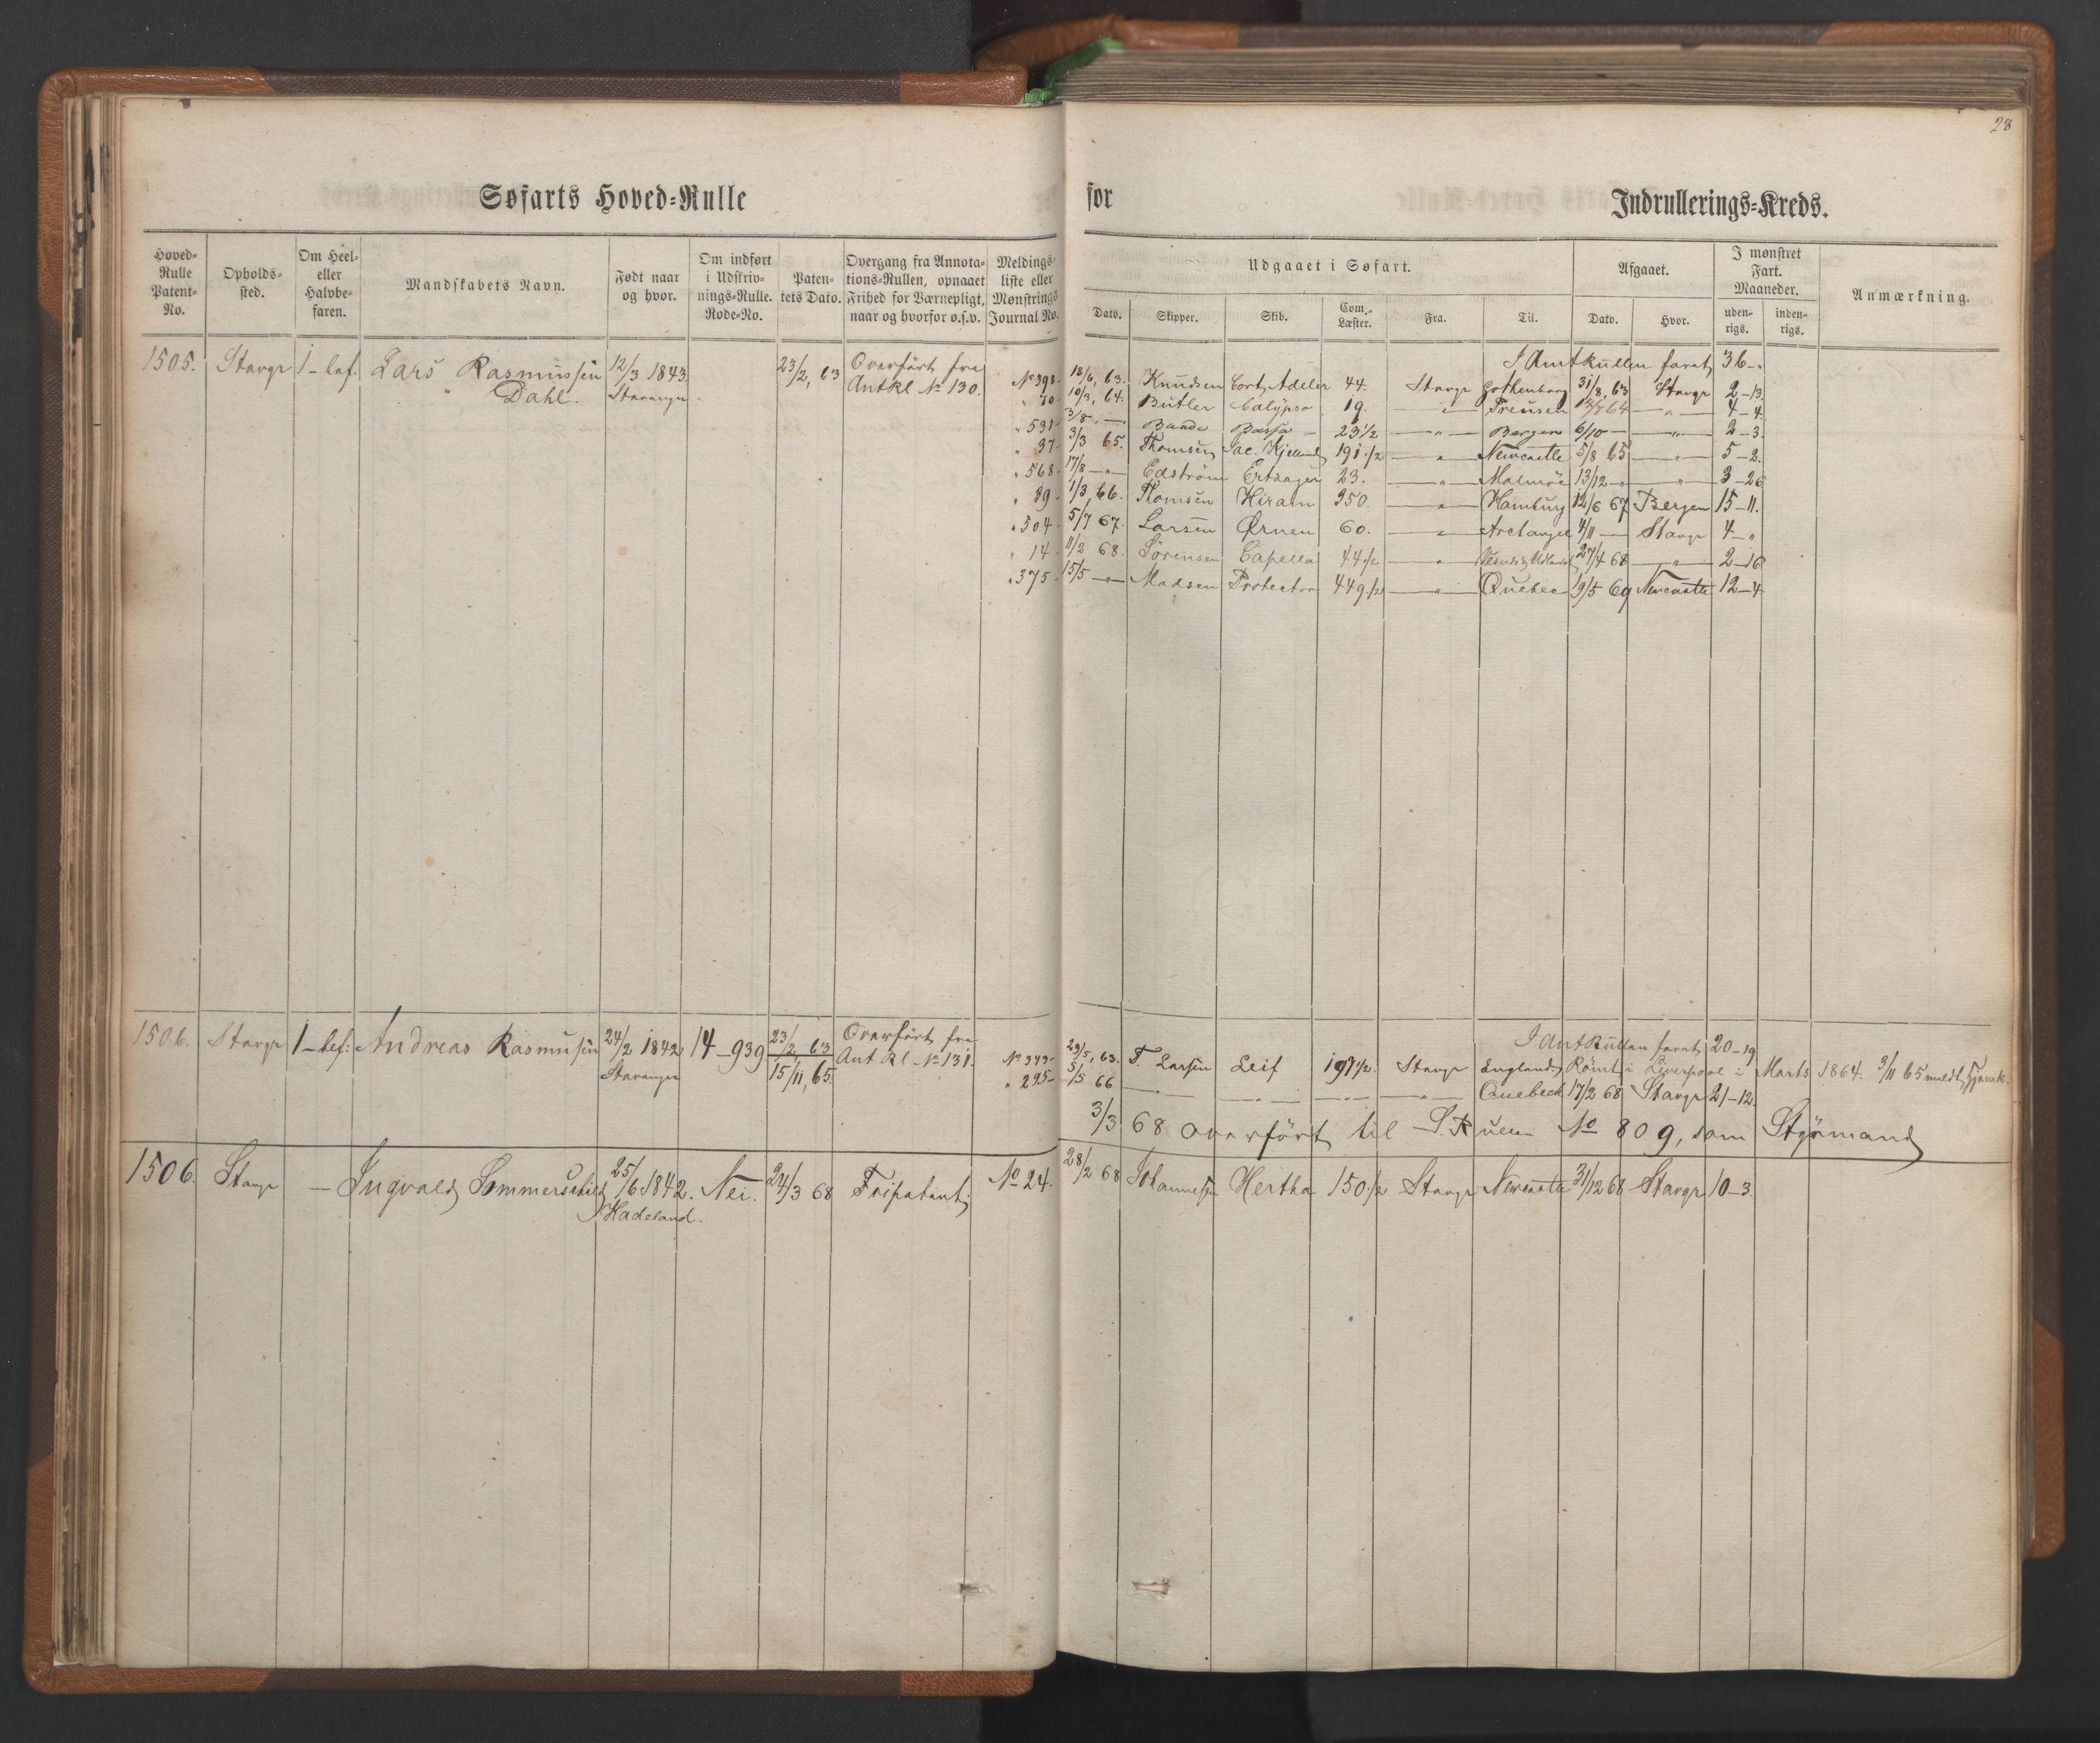 28
Søfarts Hoved=Rulle for Indrullerings=Kreds.
Hoved=Rulle Patent=No.
Opholds=sted.
Om Heel= eller Halvbe=faren.
Mandskabets Navn.
Født naar og hvor.
Om indført i Udskriv=nings=Rulle. Rode=No.
Paten=tets Dato.
Overgang fra Annota=tions=Rullen, opnaaet Frihed for Værnepligt, naar og hvorfor o.s.v.
Meldings=liste eller Mønstrings Journal No.
Udgaaet i Søfart.
Dato. Skipper. Skib. Com.=Læster. Fra. Til.
Afgaaet.
Dato. Hvor.
I mønstret Fart. Maaneder.
uden=rigs. inden=rigs.
Anmærkning.
1505. Stavgr 1 - bef. Lars Rasmussen 12/3 1843. 23/2, 63 Overført fra
Dahl. Stavanger Antkl No 130.
I Antrullen faret 36 - "
No 398 - 18/6, 63. Knudsen Cort Adeler 44. Stavgr Gothenborg 31/8, 63 Stavgr 2 - 13.
" 70 - 10/3, 64. Butler Calypso 19. — " — Preusen 64 — " — 4 - 4.
" 531 - 3/8 - — Bassa - 23 1/2 — " — Bergen 6/10 — — " — 2 - 3.
" 37 - 3/3 65. Thomsen Jac. Kjelland 191 1/2 — " — Newcastle 5/8 65 — " — 5 - 2.
" 568 - 17/8 - " - Edström 23. — " — Malmöe 13/12 - " - — " — 3 - 26
" 39 - 1/3, 66. Thomsen Hiram 350. — " — Hamburg 12/6 67 Bergen 15 - 11.
" 504 - 5/7 67. Larsen Ørnen 60. — " — Archangel 4/11 — Stavgr 4 - "
" 14 - 11/2 68. Sørensen Capella 44 1/2 — " — 27/4 68 — " — 2 - 16
" 375 - 15/5 - " - Madsen Protector 449 1/2 — " — Quebec 19/5 69 Newcastle 12 - 4
1506. Stavgr 1 - bef: Andreas Rasmussen 24/2 1842 14 - 939 23/2, 63 Overført fra
Stavanger 15/11, 65. Ant Rl - No 131.
I Antrullen faret 20 - 19
No 343 - 29/5, 63. T. Larsen Leif 197 1/2. Stavgr England Rømt i Liverpool i Marts 1864. 3/11 65 meldt hjemk.
" 295 - 5/5 66 — " — — " — — " — — " — Quebeck 17/2 68 Stavgr 21 - 12.
3/3 68 overført til S. Rullen No 809, som Styrmand
1506. Stavgr — Ingvald Sommerschild 25/6 1842. Nei. 24/3 68 Fripatent. No 24. 28/2 68 Johannesen Hertha 150 1/2 Stavgr Newcastle 31/12 68 Stavgr 10 - 3.
Hadeland.